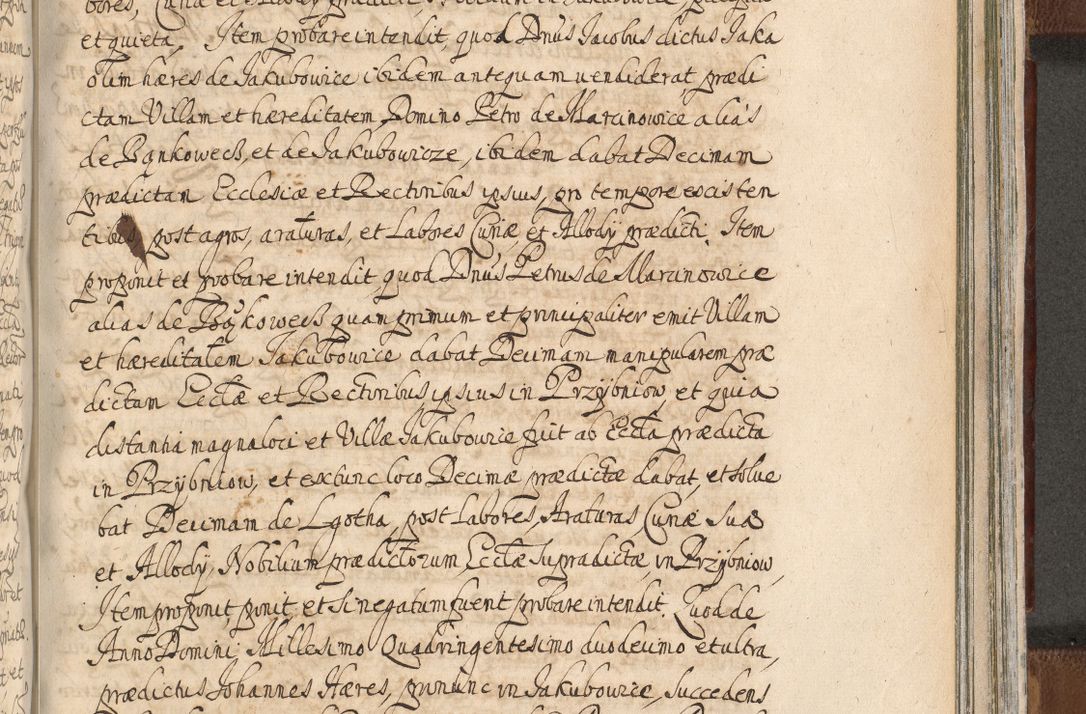 et quieta, Item probare intendit, quod Dnus Jacobus dictus Jaka
olim hæres de Jakubowice ibidem antequam vendiderat, prædi
ctam Villam et hæreditatem Domino Petro de Marcinowice aliàs
de Bąnkowecz, et de Jakubowicze, ibidem dabat Decimam
prædictam Ecclesiæ et Rectoribus ipsius, pro tempore escisten
tibus, post agros, araturas, et Labores Curiæ, et Allody prædicti. Item
proponit et probare intendit quod Dnus Petrus de Marcinowice
alias de quam primum et principaliter emit Villam
et hæreditatem Jakubowice dabat Decimam manipularem præ
dictam Ecctæ et Rectoribus ipsius in Przybniow, et quia
distantia magna loci et Villæ Jakubowice fuit ab Eccta prædicta
in Przybniow, et extunc loco Decimæ prædictæ dabat, et solve
bat Decimam de Lgotha, post Labores, Araturas Curiæ Suæ
et Allody, Nobilium prædictorum, Ecctæ Supradictæ, in Przybniow,
Item proponit, ponit, et si negatum fuerit, probare intendit. Quod de
Anno Domini Millesimo Quadringentesimo duodecimo et ultra,
prædictus Johannes Hæres, pronunc in Jakubowice, Succedens